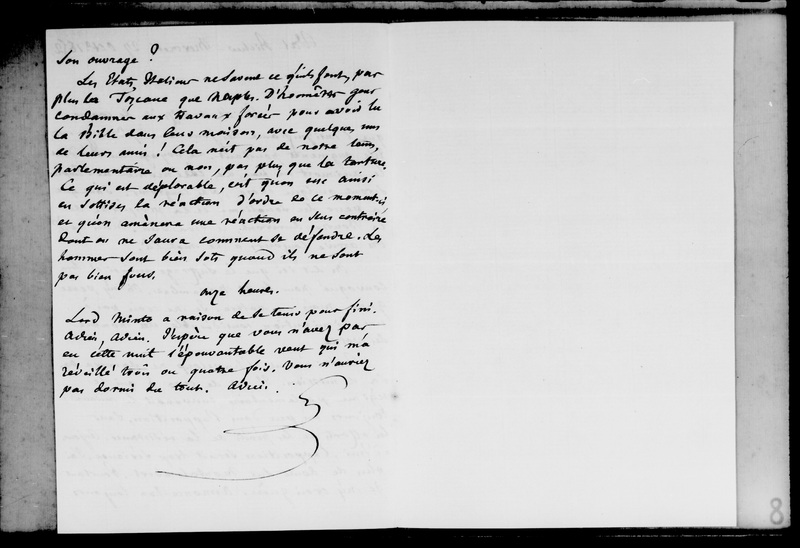 son ouvrage ?
Les Etats Italiens ne savent ce qu'ils font, pas
plus la Toscane que Naples. D'honnêtes gens
condamnés aux travaux forcés pour avoir lu
la Bible dans leurs maisons, avec quelques uns
de leurs amis ! Cela n'est pas de notre tems,
parlementaire ou non, pas plus que la torture.
Ce qui est déplorable, c'est qu'on use ainsi
en sottises la réaction d'ordre de ce moment-ci
et qu'on amènera une réaction en sens contraire
dont on ne saura comment se défendre. Les
hommes sont bien sots quand ils ne sont
pas bien fous.
onze heures.
Lord Minto a raison de se tenir pour fini.
Adieu, Adieu. J'espère que vous n'avez pas
eu cette nuit l'épouvantable vent qui m'a
réveillé trois ou quatre fois. Vous n'auriez
pas dormi du tout. Adieu.
8